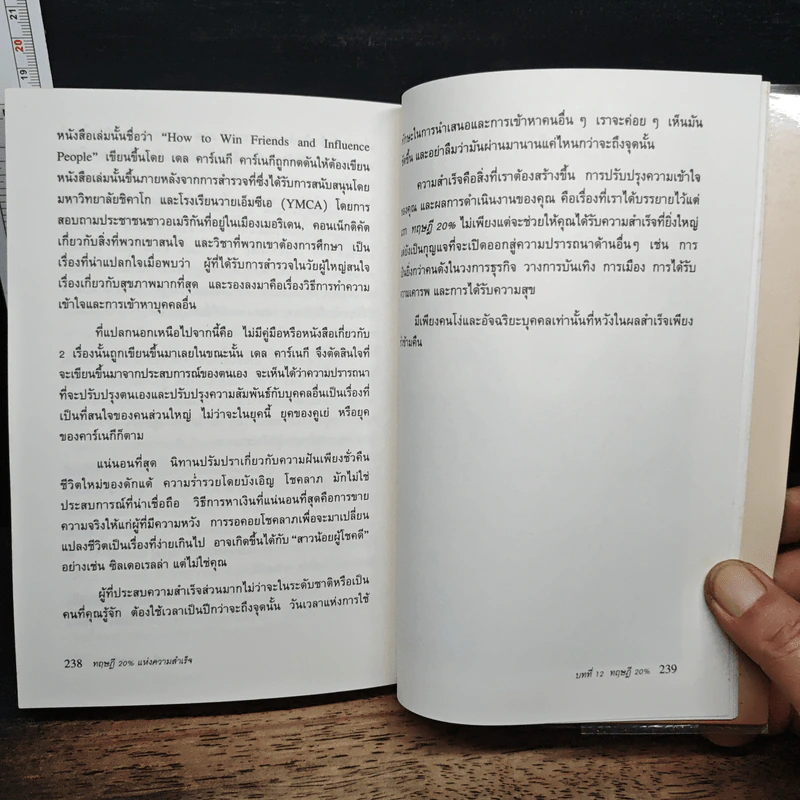 21
20
19
หนังสือเล่มนั้นชื่อว่า “How to Win Friends and Influence
People” เขียนขึ้นโดย เดล คาร์เนกี คาร์เนกีถูกกดดันให้ต้องเขียน
หนังสือเล่มนั้นขึ้นภายหลังจากการสำรวจที่ซึ่งได้รับการสนับสนุนโดย
มหาวิทยาลัยชิคาโก และโรงเรียนวายเอ็มซีเอ (YMCA) โดยการ
สอบถามประชาชนชาวอเมริกันที่อยู่ในเมืองเมอริเดน, คอนเน็กติคัต
เกี่ยวกับสิ่งที่พวกเขาสนใจ และวิชาที่พวกเขาต้องการศึกษา เป็น
เรื่องที่น่าแปลกใจเมื่อพบว่า ผู้ที่ได้รับการสำรวจในวัยผู้ใหญ่สนใจ
เรื่องเกี่ยวกับสุขภาพมากที่สุด และรองลงมาคือเรื่องวิธีการทำความ
เข้าใจและการเข้าหาบุคคลอื่น
ที่แปลกนอกเหนือไปจากนี้คือ ไม่มีคู่มือหรือหนังสือเกี่ยวกับ
2 เรื่องนั้นถูกเขียนขึ้นมาเลยในขณะนั้น เดล คาร์เนกี จึงตัดสินใจที่
จะเขียนขึ้นมาจากประสบการณ์ของตนเอง จะเห็นได้ว่าความปรารถนา
ที่จะปรับปรุงตนเองและปรับปรุงความสัมพันธ์กับบุคคลอื่นเป็นเรื่องที่
เป็นที่สนใจของคนส่วนใหญ่ ไม่ว่าจะในยุคนี้ ยุคของคูเย่ หรือยุค
ของคาร์เนกีก็ตาม
แน่นอนที่สุด นิทานปรัมปราเกี่ยวกับความฝันเพียงชั่วคืน
ชีวิตใหม่ของดักแด้ ความร่ำรวยโดยบังเอิญ โชคลาภ มักไม่ใช่
ประสบการณ์ที่น่าเชื่อถือ วิธีการหาเงินที่แน่นอนที่สุดคือการขาย
ความจริงให้แก่ผู้ที่มีความหวัง การรอคอยโชคลาภเพื่อจะมาเปลี่ยน
แปลงชีวิตเป็นเรื่องที่ง่ายเกินไป อาจเกิดขึ้นได้กับ “สาวน้อยผู้โชคดี”
อย่างเช่น ซิลเดอเรลล่า แต่ไม่ใช่คุณ
ผู้ที่ประสบความสำเร็จส่วนมากไม่ว่าจะในระดับชาติหรือเป็น
คนที่คุณรู้จัก ต้องใช้เวลาเป็นปีกว่าจะถึงจุดนั้น วันเวลาแห่งการใช้
238 ทฤษฎี 20% แห่งความสำเร็จ
ในการนำเสนอและการเข้าหาคนอื่น ๆ เราจะค่อย ๆ เห็นมัน
และอย่าลืมว่ามันผ่านมานานแค่ไหนกว่าจะถึงจุดนั้น
ความสำเร็จคือสิ่งที่เราต้องสร้างขึ้น การปรับปรุงความเข้าใจ
ของคุณ และผลการดำเนินงานของคุณ คือเรื่องที่เราได้บรรยายไว้แต่
ทฤษฎี 20% ไม่เพียงแต่จะช่วยให้คุณได้รับความสำเร็จที่ยิ่งใหญ่
ยังเป็นกุญแจที่จะเปิดออกสู่ความปรารถนาด้านอื่นๆ เช่น การ
เป็นยิ่งกว่าคนดังในวงการธุรกิจ วางการบันเทิง การเมือง การได้รับ
ความเคารพ และการได้รับความสุข
มีเพียงคนโง่และอัจฉริยะบุคคลเท่านั้นที่หวังในผลสำเร็จเพียง
ข้ามคืน
บทที่ 12 ทฤษฎี 20% 239